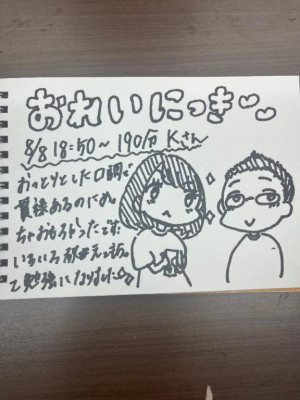 おれいにっき♡♡
8/8 18:50〜190分 Kさん
おっとりとした口調で
貫禄あるのにめ
ちゃおもろかったです
いろいろ教えてもらっ
て勉強になりました